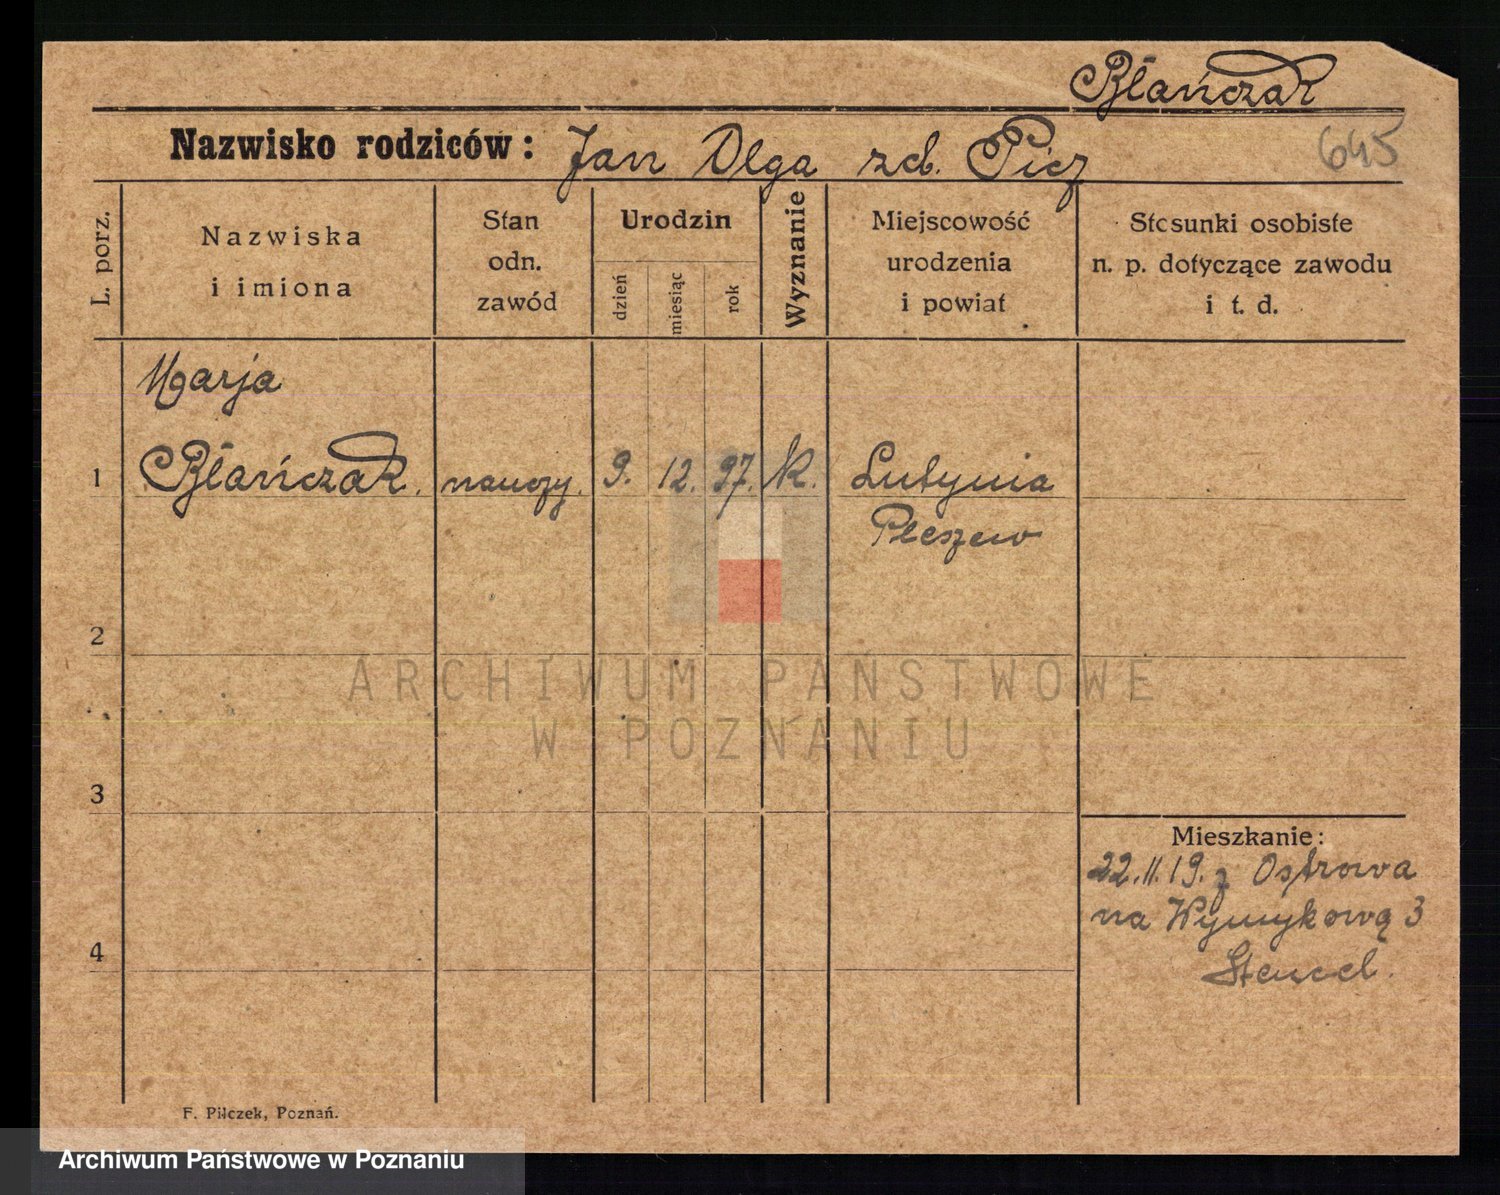 Błańczak
Nazwisko rodziców: Jan Olga zd. Picz
645
L. porz.
Nazwiska
i imiona
Stan
odn.
zawód
Urodzin
dzień
miesiąc
rok
Wyznanie
Miejscowość
urodzenia
i powiat
Stosunki osobiste
n. p. dotyczące zawodu
i t. d.
Marja
1 Błańczak. nauczy. 9. 12. 97. K. Lutynia
Pleszew
2
3
4
Mieszkanie:
22.II.19. z Ostrowa
na 3
Stencel.
F. Pilczek, Poznań.
ARCHIWUM PAŃSTWOWE
W POZNANIU
Archiwum Państwowe w Poznaniu